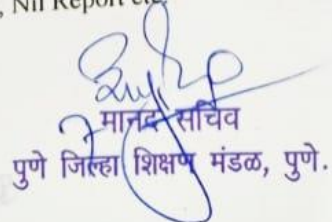 , Nil Report etc
मानद सचिव
पुणे जिल्हा शिक्षण मंडळ, पुणे.